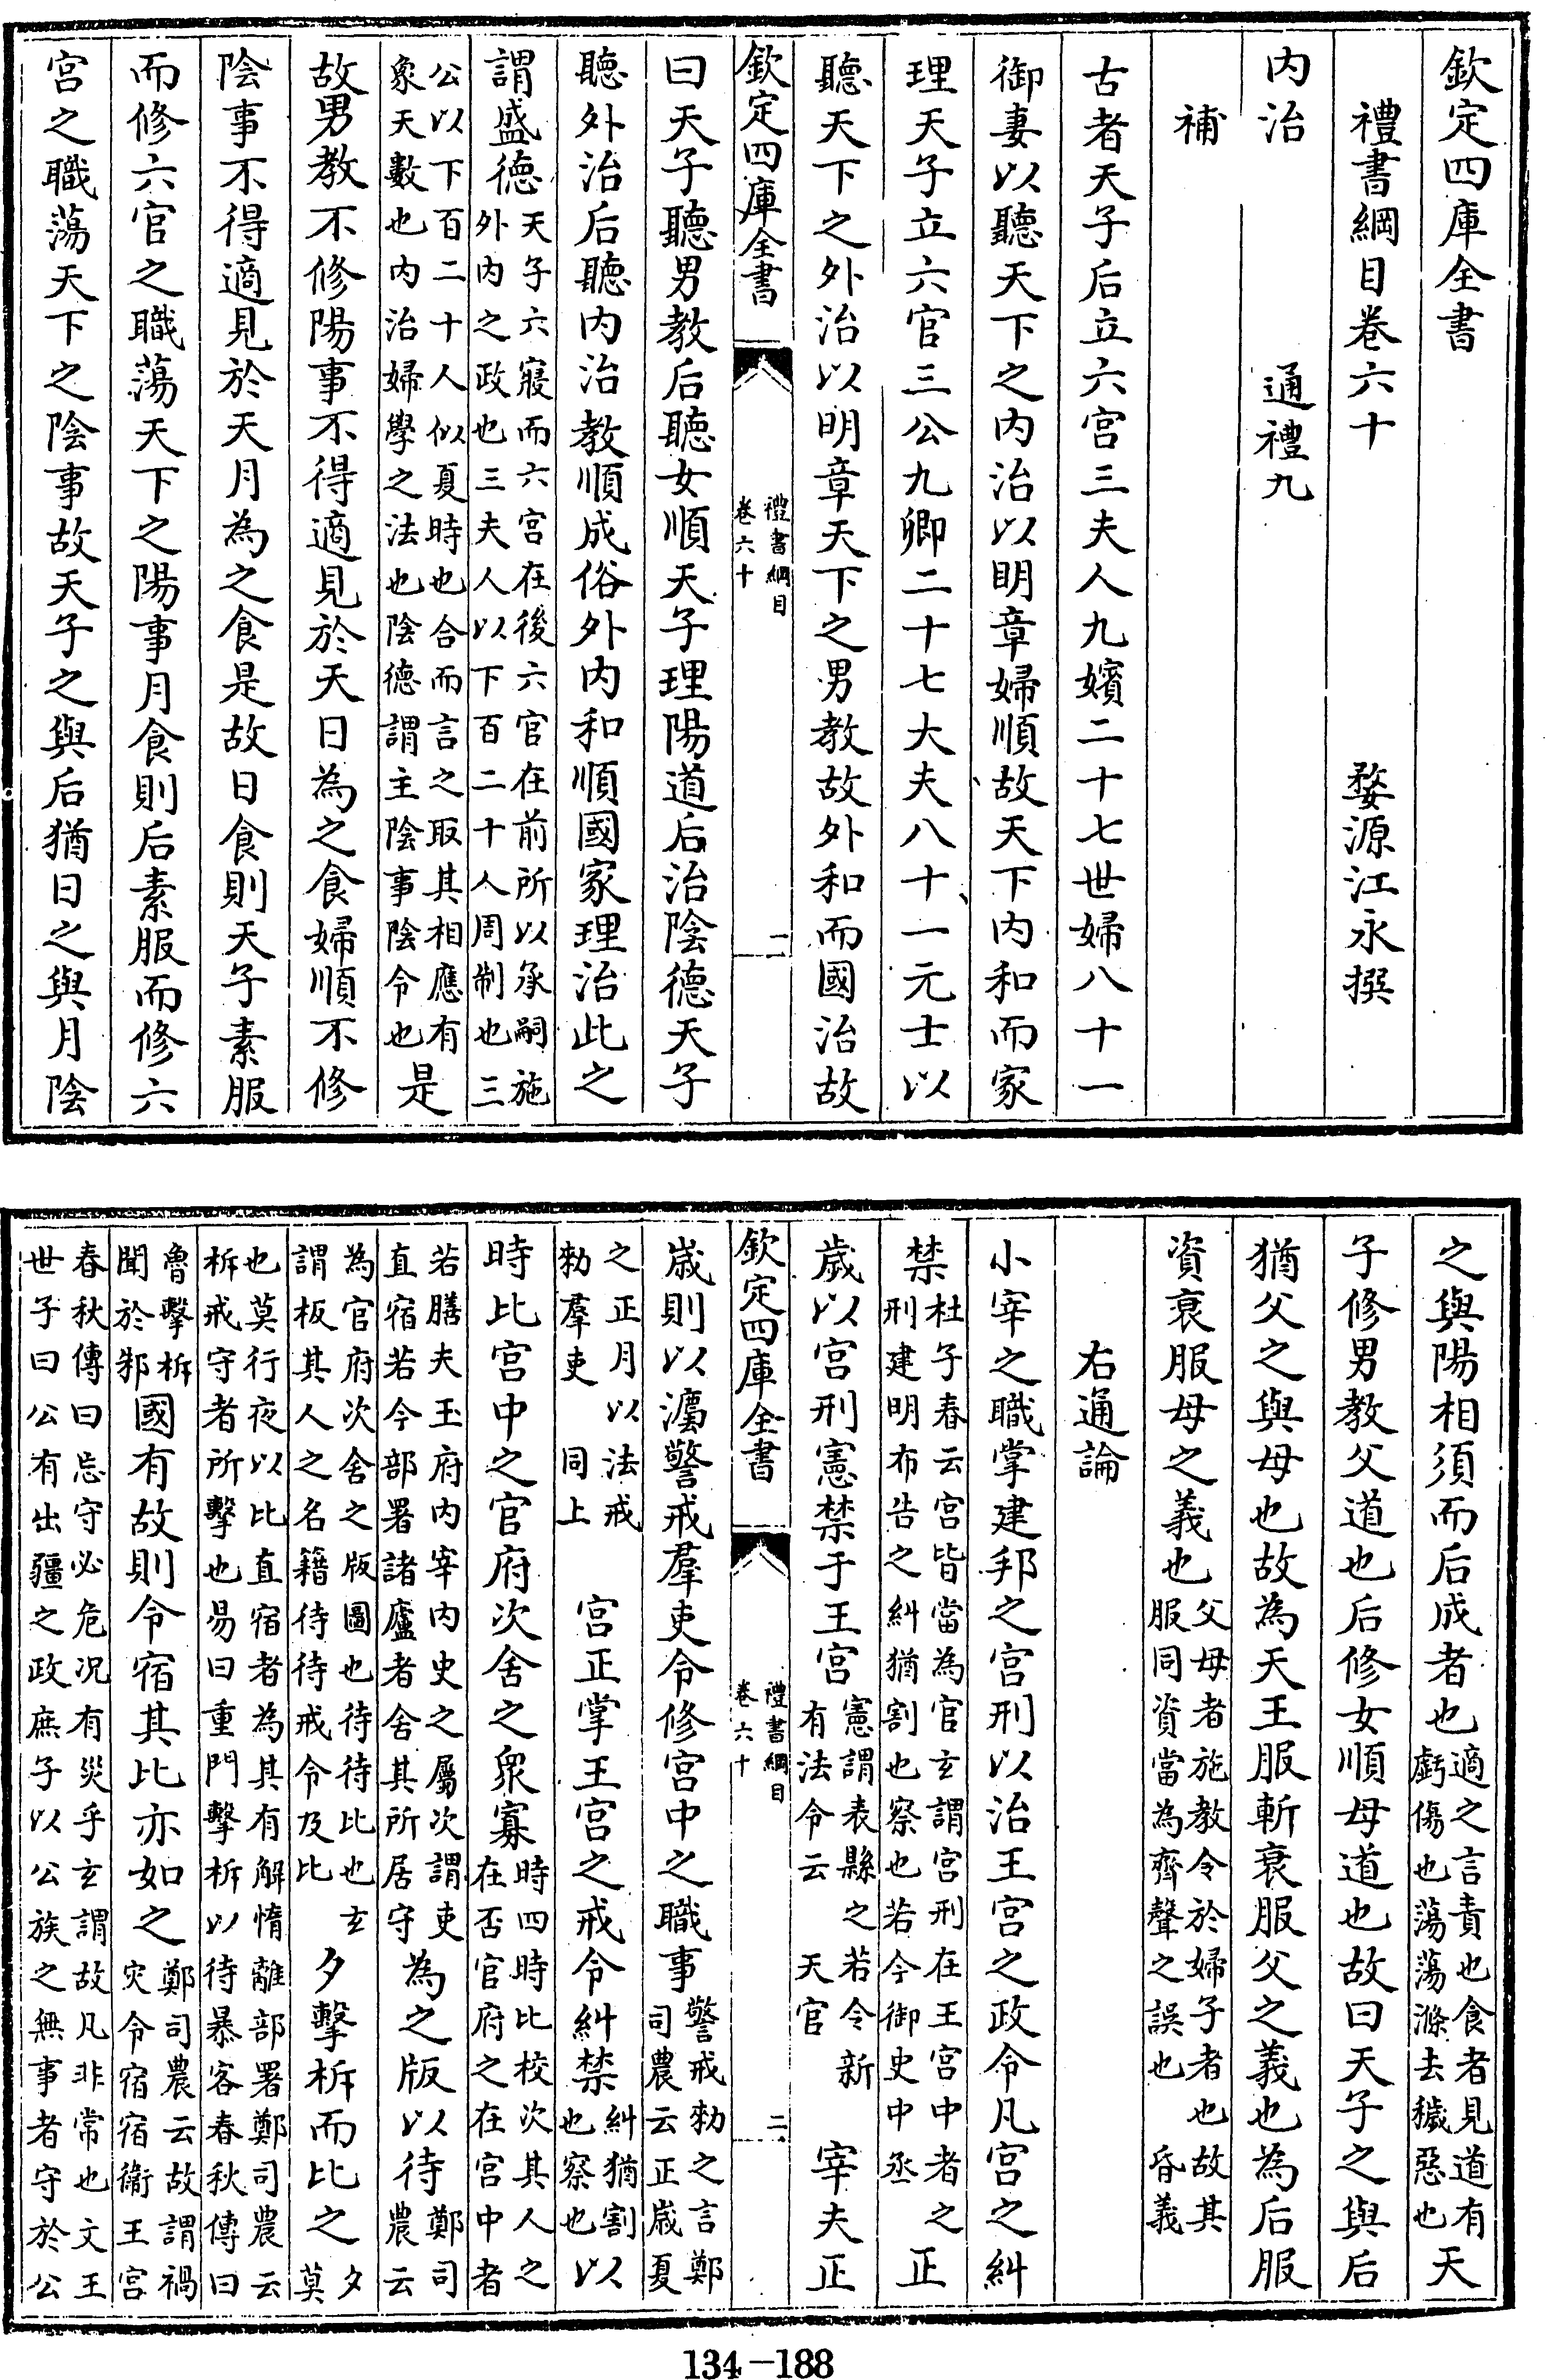 欽定四庫全書
禮書綱目卷六十　　　　　婺源江永撰
内治　　　　通禮九
補
古者天子后立六宫三夫人九嬪二十七世婦八十一
御妻以聽天下之内治以明章婦順故天下内和而家
理天子立六官三公九卿二十七大夫八十一元士以
聽天下之外治以明章天下之男教故外和而國治故
欽定四庫全書　禮書綱目卷六十　一
曰天子聽男教后聽女順天子理陽道后治陰德天子
聽外治后聽内治教順成俗外内和順國家理治此之
謂盛德天子六寢而六宫在後六官在前所以承嗣施外内之政也三夫人以下百二十人周制也三
公以下百二十人似夏時也合而言之取其相應有象天數也内治婦學之法也陰德謂主陰事陰令也是
故男教不修陽事不得適見於天日為之食婦順不修
陰事不得適見於天月為之食是故日食則天子素服
而修六官之職蕩天下之陽事月食則后素服而修六
宫之職蕩天下之陰事故天子之與后猶日之與月陰
之與陽相須而后成者也適之言責也食者見道有虧傷也蕩蕩滌去穢惡也天
子修男教父道也后修女順母道也故曰天子之與后
猶父之與母也故為天王服斬衰服父之義也為后服
資衰服母之義也父母者施教令於婦子者也故其服同資當為齊聲之誤也　昏義
右通論
小宰之職掌建邦之宫刑以治王宫之政令凡宫之糾
禁杜子春云宫皆當為官玄謂宫刑在王宫中者之刑建明布告之糾猶割也察也若今御史中丞正
歲以宫刑憲禁于王宫憲謂表縣之若今新有法令云　天官　宰夫正
欽定四庫全書　禮書綱目卷六十　二
歲則以灋警戒羣吏令修宫中之職事警戒勑之言鄭司農云正歲夏
之正月以法戒勑羣吏　同上　宫正掌王宫之戒令糾禁糾猶割也察也以
時比宫中之官府次舍之衆寡時四時比校次其人之在否官府之在宫中者
若膳夫玉府内宰内史之屬次謂吏直宿若今部署諸廬者舍其所居守為之版以待鄭司農云
為官府次舍之版圖也待待比也玄謂板其人之名籍待待戒令及比夕擊柝而比之夕莫
也莫行夜以比直宿者為其有解惰離部署鄭司農云柝戒守者所擊也易曰重門擊柝以待暴客春秋傳曰
魯擊柝聞於邾國有故則令宿其比亦如之鄭司農云故謂禍灾令宿宿衛王宫
春秋傳曰忘守必危况有災乎玄謂故凡非常也文王世子曰公有出疆之政庶子以公族之無事者守於公
134-188